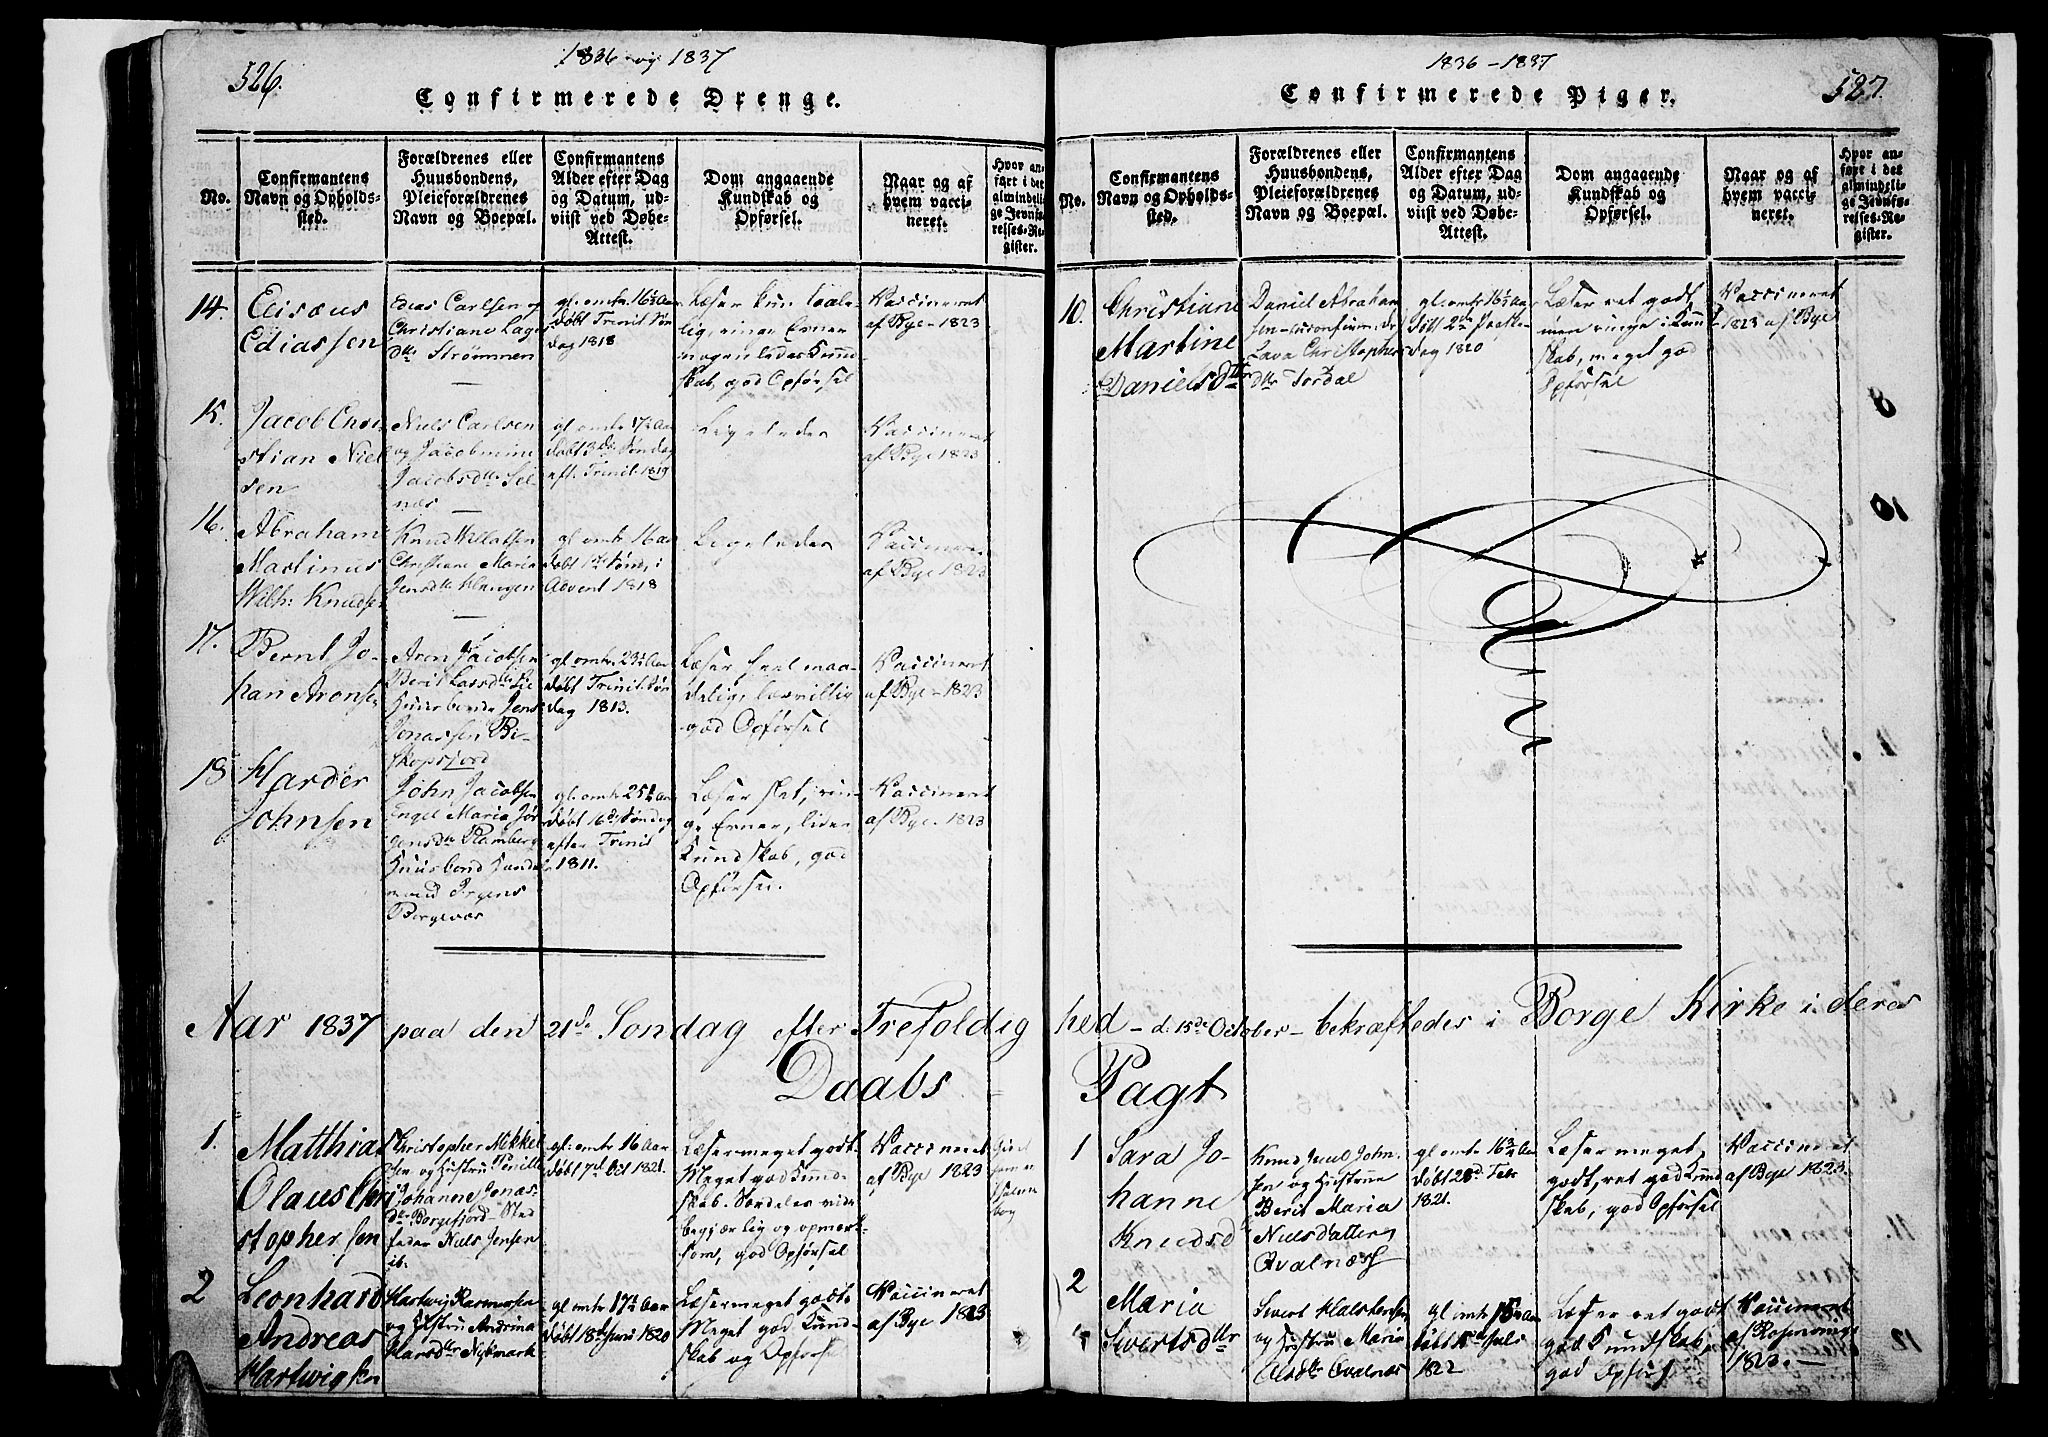 526.
1836 og 1837
Confirmerede Drenge.
No.
Confirmantens
Navn og Opholds-
sted.
Forældrenes eller
Huusbondens,
Pleieforældrenes
Navn og Boepæl.
Confirmantens
Alder efter Dag
og Datum, ud-
viist ved Døbe-
Attest.
Dom angaaende
Kundskab og
Opførsel.
Naar og af
hvem vacci-
neret.
Hvor an-
ført i det
almindeli-
ge Jevnfø-
relses-Re-
gister.
14.
Elisæus
Ediassen
Edias Carlsen og
Christiane Lags
dtr Strømmen
gl. omtr. 16½ Aar
døbt Trinit. Søn
dag 1818
Læser kun taale-
lig, ringe Evner
nogenledes Kund
skab, god Opførsel
Vaccineret
af Bye - 1823
15.
Jacob Chri
stian Niel
sen
Niels Carlsen
og Jacobmine
Jacobsdtr Sel
næs
gl omtr 17½ Aar
døbt 3de Søndag
eft. Trinit. 1819
Ligeledes
Vaccineret
af Bye 1823
16.
Abraham
Martinus
Wilh: Knudsen
Knud Willatsen
Christiane Maria
Jensdtr
gl omtr. 16 Aar
døbt 1ste Sønd. i
Advent 1818
Ligeledes
Vaccineret
af Bye 1823
17.
Bernt Jo-
han Aronsen
Aron Jacobsen
Berit Larsdtr
Huusbonde Jens
Jonassen Bi-
skopsfjord
gl. omtr. 23½ Aar
døbt Trinit. Søn
dag 1813.
Læser heel maa-
delig, lærvillig
god Opførsel
Vaccineret
af Bye - 1823
18
Harder
Johnsen
John Jacobsen
Engel Maria Jør
gensdtr Ramberg
Huusbond Handels
mand Irgens
Borgevær
gl. omtr 25¼ Aar
døbt 16de Søndag
efter Trinit
1811.
Læser slet, rin-
ge Evner, liden
Kundskab, god
Opførsel.
Vaccineret
af Bye. 1823
Aar 1837 paa den 21de Søndag efter Trefoldig
Daabs
1.
Matthias
Olaus Chri
stophersen
Christopher Mikkel
sen og Hustru Pernille
Johanne Jonas-
dtr Borgefjord - Sted
fader Niels Jensen
ib.
gl. omtr 16 Aar
døbt 7de Oct 1821.
Læser meget godt
Meget god Kund-
skab. Særdeles vide
begjærlig og opmærk-
som, god Opførsel
Vaccineret
af Bye 1823
2
Leonhard
Andreas
Hartwigsen
Hartwig Rasmussen
og Hustru Andrina
Larsdtr Nybmark
gl omtr 17½ Aar
døbt 18de Juni 1820
Læser meget godt
Meget god Kund-
skab og Opførsel
Vaccineret
af Bye 1823
1836 - 1837
527.
Confirmerede Piger.
No.
Confirmantens
Navn og Opholds-
sted.
Forældrenes eller
Huusbondens,
Pleieforældrenes
Navn og Boepæl.
Confirmantens
Alder efter Dag
og Datum, ud-
viist ved Døbe-
Attest.
Dom angaaende
Kundskab og
Opførsel.
Naar og af
hvem vacci-
neret.
Hvor an-
ført i det
almindeli-
ge Jevnfø-
relses-Re-
gister.
10.
Christiane
Martine
Danielsdtr
Daniel Abraham
sen
Lava Christophers
dtr Tordal
gl. omtr 16½ Aar
døbt 2den Paaske-
dag 1820
Læser ret godt,
men ringe i Kund
skab, meget god
Opførsel
Vaccineret
1823 af Bye
hed - d. 15de October - bekræftedes i Borge Kirke i: deres
Pagt
1
Sara Jo-
hanne
Knudsd
Knud Juul John-
sen og Hustrue
Berit Maria
Nielsdatter
Qvalnæss
gl omtr 16¾ Aar
døbt Febr
1821.
Læser meget
godt, ret god Kund
skab, god Opførsel
Vaccineret
af Bye 1823.
2
Maria
Sivertsdtr
Sivert Halstensen
og Hustru Maria
Olsdtr Qvalnæs
gl omtr 15 Aar
døbt
1822
Læser ret godt
god Kundskab,
god Opførs
Vaccineret
af
1823. -